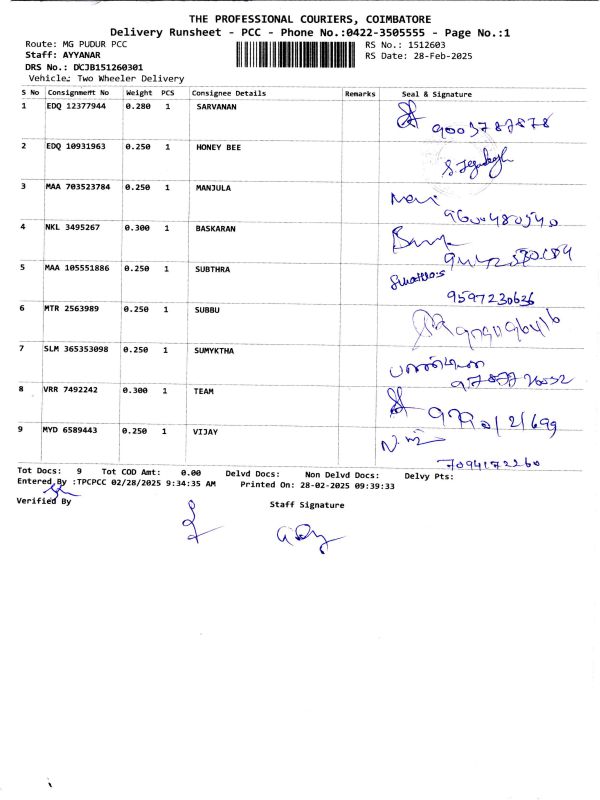 THE PROFESSIONAL COURIERS, COIMBATORE
Delivery Runsheet - PCC - Phone No.:0422-3505555 - Page No.:1
Route: MG PUDUR PCC RS No.: 1512603
Staff: AYYANAR RS Date: 28-Feb-2025
DRS No.: DCJB151260301
Vehicle: Two Wheeler Delivery
S No Consignment No Weight PCS Consignee Details Remarks Seal & Signature
1 EDQ 12377944 0.280 1 SARVANAN
2 EDQ 10931963 0.250 1 HONEY BEE
3 MAA 703523784 0.250 1 MANJULA
9600480540
4 NKL 3495267 0.300 1 BASKARAN
5 MAA 105551886 0.250 1 SUBTHRA
9597230636
6 MTR 2563989 0.250 1 SUBBU
7 SLM 365353098 0.250 1 SUMYKTHA
8 VRR 7492242 0.300 1 TEAM
9 MYD 6589443 0.250 1 VIJAY
7094172260
Tot Docs: 9 Tot COD Amt: 0.00 Delvd Docs: Non Delvd Docs: Delvy Pts:
Entered By :TPCPCC 02/28/2025 9:34:35 AM Printed On: 28-02-2025 09:39:33
Verified By Staff Signature